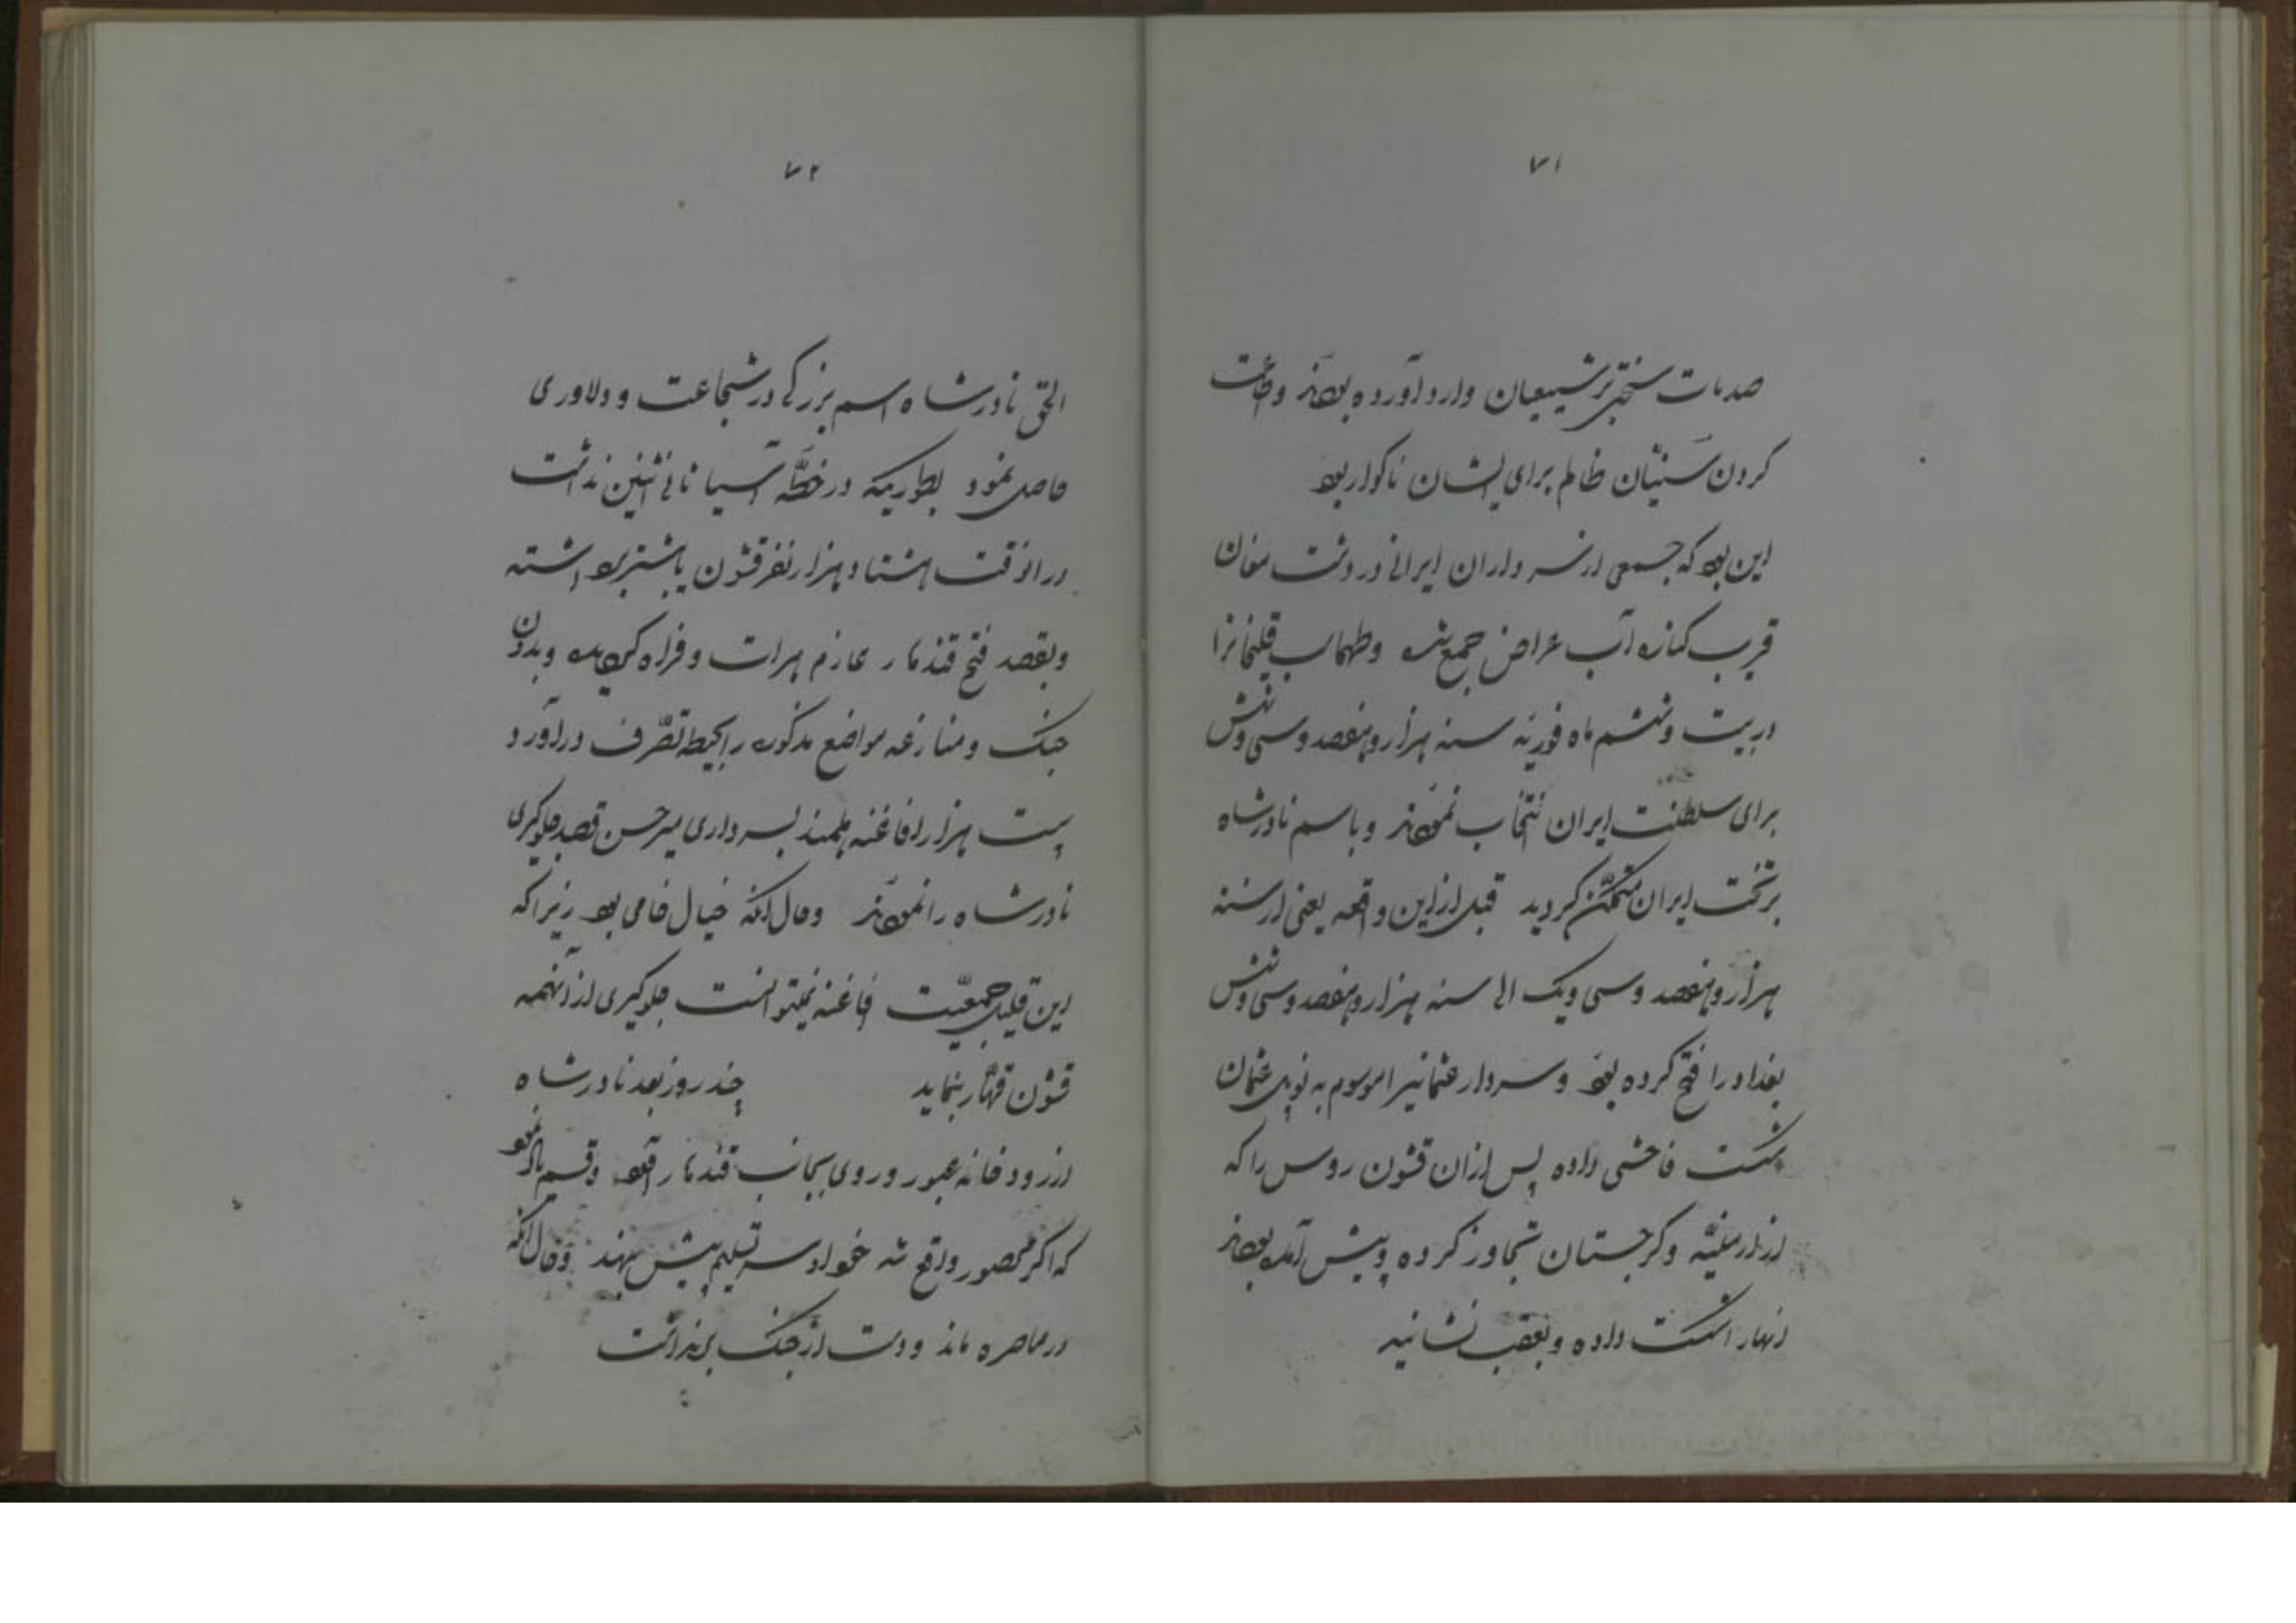 ۷۱
صدمات سختی بر شیعیان وارد آورده بودند و اطاعت
کردن سنیّان ظالم برای ایشان ناکوار بود
این بود که جمعی از سرداران ایرانی در دشت مغان
قریب کناره آب عراض جمع شده و طهماسب قلیخانرا
در بیست و ششم ماه فوریّه سنه هزار و هفتصد و سی و شش
برای سلطنت ایران انتخاب نمودند و باسم نادرشاه
بر تخت ایران متمکّن کردید قبل از این واقعه یعنی از سنه
هزار و هفتصد و سی و یک الی سنه هزار و هفتصد و سی و شش
بغداد را فتح کرده بود و سردار عثمانیرا موسوم به توپل عثمان
شکست فاحشی داده پس ازان قشون روس را که
از ارمنیّه و کرجستان تجاوز کرده و پیش آمده بودند
انهارا شکست داده و بعقب نشانید
۷۲
الحق نادرشاه اسم بزرکی در شجاعت و دلاوری
حاصل نمود بطوریکه در خطّه آسیا ثانی اثنین نداشت
در انوقت هشتاد هزار نفر قشون یا بیشتر برداشته
و بقصد فتح قندهار عازم هرات و فراه کردیده و بدون
جنک و منازعه مواضع مذکوره را بحیطه تصّرف در آورد
بیست هزار افاغنه هلمند بسرداری میرحسن قصد جلوکیری
نادرشاه را نمودند و حال انکه خیال خامی بود زیرا که
این قلیل جمعیّت افاغنه نمیتوانست جلوکیری از آنهمه
قشون قهّار بنماید چند روز بعد نادرشاه
از رودخانه عبور و روی بجانب قندهار و قسم یاد نمود
که اکر محصور واقع شد خود سر تسلیم پیش نهند و حال انکه
در محاصره ماند و دست از جنک بر نداشت